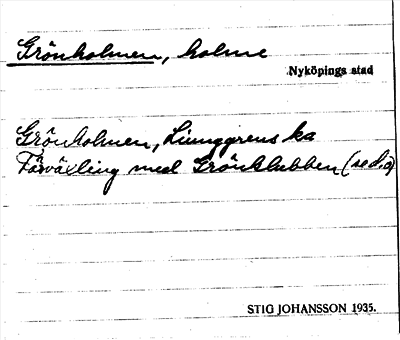 Grönholmen, holme
Nyköpings stad
Grönholmen, Ljunggrens ka
Förväxling med Grönklubben (se d.o)
STIG JOHANSSON 1935.